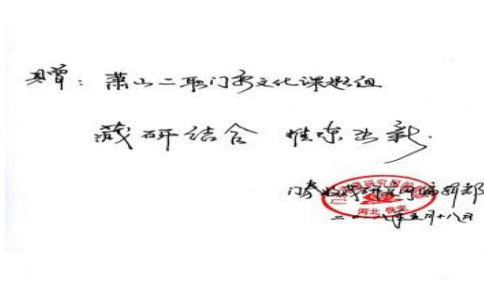 赠：萧山二职门券文化课题组
藏研结合 推陈出新.
门券收藏研究编辑部
河北 保定
二〇〇八年五月十八日